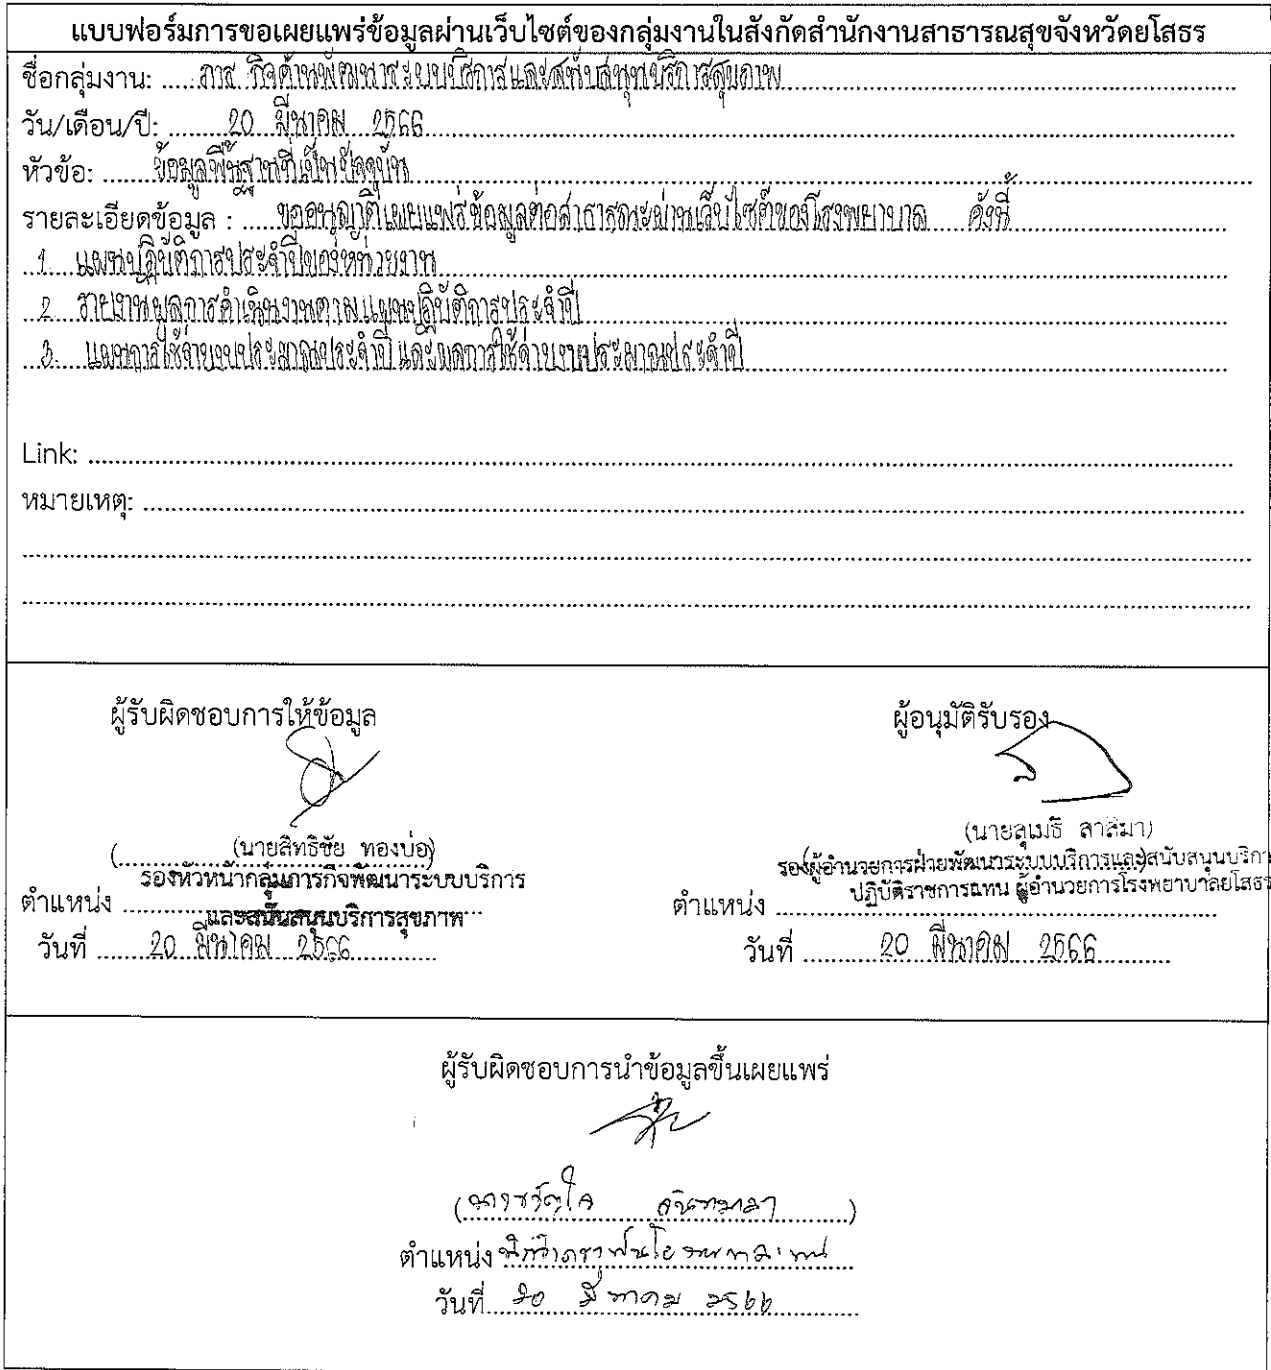 แบบฟอร์มการขอเผยแพร่ข้อมูลผ่านเว็บไซต์ของกลุ่มงานในสังกัดสำนักงานสาธารณสุขจังหวัดยโสธร
ชื่อกลุ่มงาน: ภารกิจด้านพัฒนาระบบบริการและสนับสนุนบริการสุขภาพ
วัน/เดือน/ปี: 20 มีนาคม 2566
หัวข้อ: ข้อมูลพื้นฐานที่เป็นปัจจุบัน
รายละเอียดข้อมูล : ขออนุญาติเผยแพร่ข้อมูลต่อสาธารณะผ่านเว็บไซต์ของโรงพยาบาล ดังนี้
1. แผนปฏิบัติการประจำปีของหน่วยงาน
2. รายงานผลการดำเนินงานตามแผนปฏิบัติการประจำปี
3. แผนการใช้จ่ายงบประมาณประจำปี และผลการใช้จ่ายงบประมาณประจำปี
Link:
หมายเหตุ:
ผู้รับผิดชอบการให้ข้อมูล ผู้อนุมัติรับรอง
(นายสิทธิชัย ทองบ่อ) (นายสุเมธี ลาสิมา)
รองหัวหน้ากลุ่มภารกิจพัฒนาระบบบริการ รองผู้อำนวยการฝ่ายพัฒนาระบบบริการและสนับสนุนบริกา
ตำแหน่ง และสนับสนุนบริการสุขภาพ ตำแหน่ง ปฏิบัติราชการแทน ผู้อำนวยการโรงพยาบาลยโสธร
วันที่ 20 มีนาคม 2566 วันที่ 20 มีนาคม 2566
ผู้รับผิดชอบการนำข้อมูลขึ้นเผยแพร่
ตำแหน่ง
วันที่ 20 มีนาคม 2566